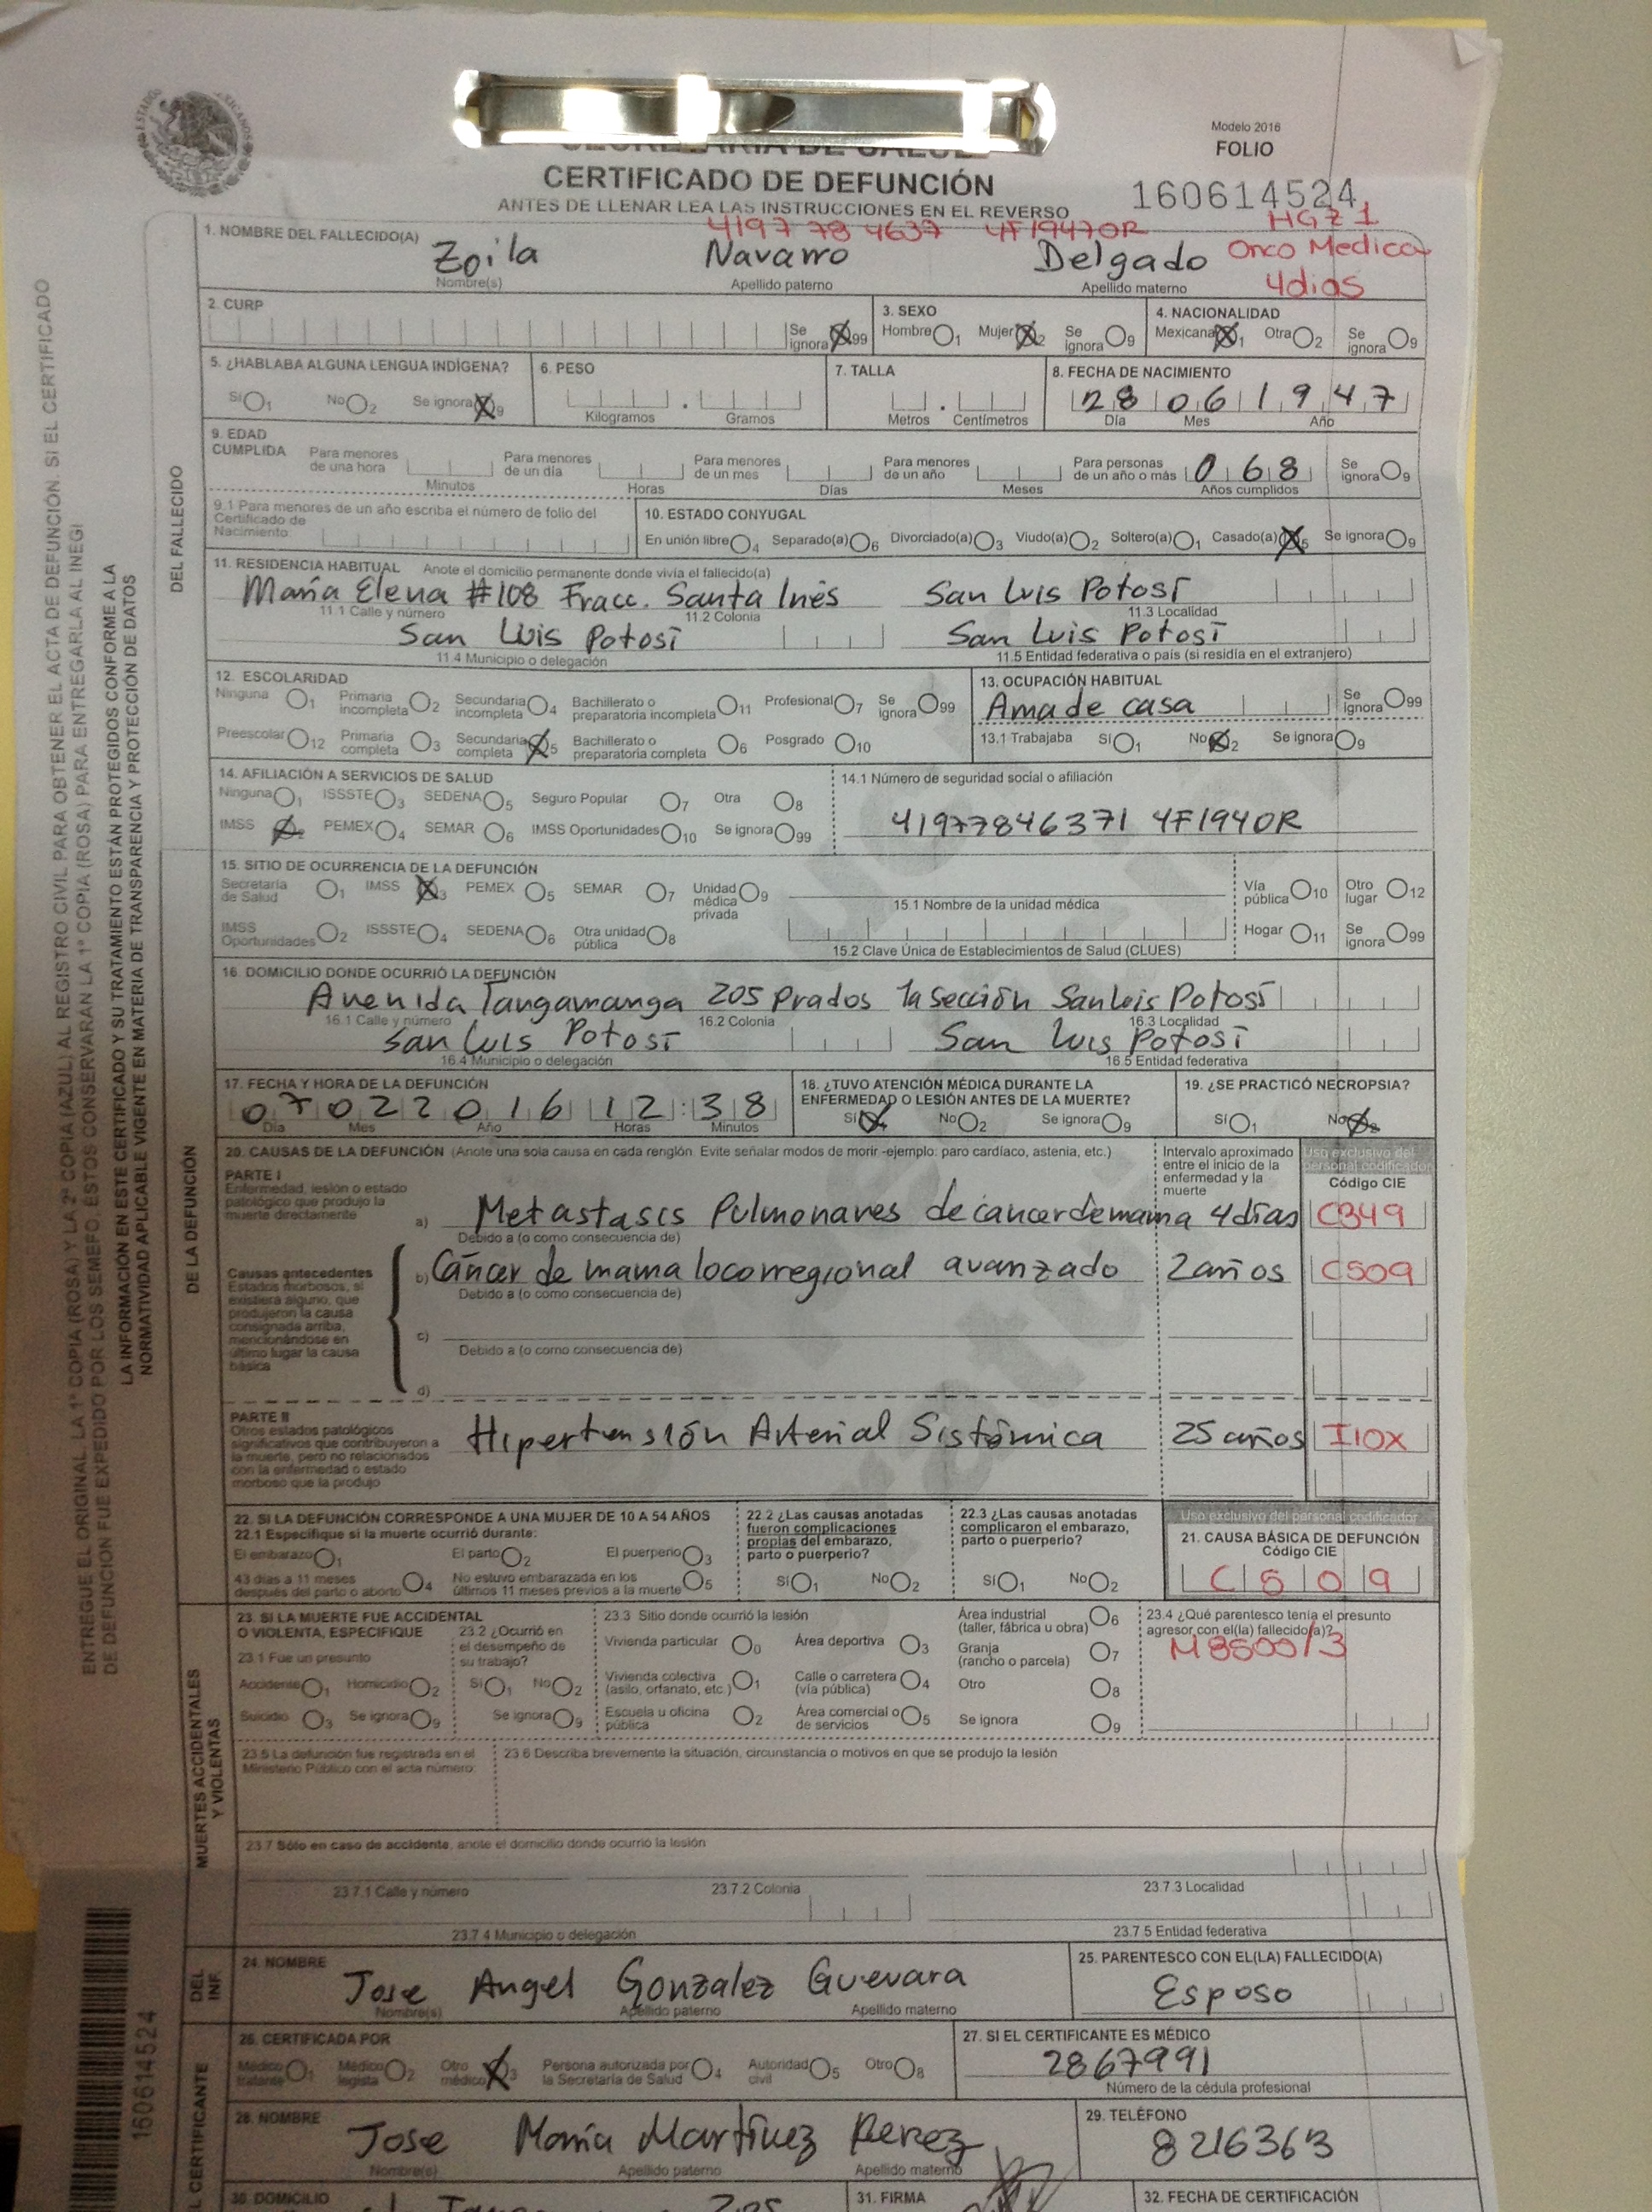 Modelo 2016
FOLIO
CERTIFICADO DE DEFUNCIÓN
160614524
ANTES DE LLENAR LEA LAS INSTRUCCIONES EN EL REVERSO
4197 78 4637 4F19470R HGZ 1
1. NOMBRE DEL FALLECIDO(A)
Zoila Navarro Delgado Onco Medica
Nombre(s) Apellido paterno Apellido materno 4dias
2. CURP Se ignora 99 3. SEXO Hombre 1 Mujer 2 Se ignora 9 4. NACIONALIDAD Mexicana 1 Otra 2 Se ignora 9
5. ¿HABLABA ALGUNA LENGUA INDÍGENA? 6. PESO 7. TALLA 8. FECHA DE NACIMIENTO
Sí 1 No 2 Se ignora 9 Kilogramos Gramos Metros Centímetros 28 06 1947
Día Mes Año
9. EDAD CUMPLIDA Para menores de una hora Minutos Para menores de un día Horas Para menores de un mes Días Para menores de un año Meses Para personas de un año o más 068 Años cumplidos Se ignora 9
9.1 Para menores de un año escriba el número de folio del Certificado de Nacimiento:
10. ESTADO CONYUGAL
En unión libre 4 Separado(a) 6 Divorciado(a) 3 Viudo(a) 2 Soltero(a) 1 Casado(a) 5 Se ignora 9
11. RESIDENCIA HABITUAL Anote el domicilio permanente donde vivía el fallecido(a)
María Elena #108 Fracc. Santa Inés San Luis Potosí
11.1 Calle y número 11.2 Colonia 11.3 Localidad
San Luis Potosí San Luis Potosí
11.4 Municipio o delegación 11.5 Entidad federativa o país (si residía en el extranjero)
12. ESCOLARIDAD
Ninguna 1 Primaria incompleta 2 Secundaria incompleta 4 Bachillerato o preparatoria incompleta 11 Profesional 7 Se ignora 99
Preescolar 12 Primaria completa 3 Secundaria completa 5 Bachillerato o preparatoria completa 6 Posgrado 10
13. OCUPACIÓN HABITUAL
Ama de casa Se ignora 99
13.1 Trabajaba Sí 1 No 2 Se ignora 9
14. AFILIACIÓN A SERVICIOS DE SALUD
Ninguna 1 ISSSTE 3 SEDENA 5 Seguro Popular 7 Otra 8
IMSS 2 PEMEX 4 SEMAR 6 IMSS Oportunidades 10 Se ignora 99
14.1 Número de seguridad social o afiliación
41977846371 4F1940R
15. SITIO DE OCURRENCIA DE LA DEFUNCIÓN
Secretaría de Salud 1 IMSS 3 PEMEX 5 SEMAR 7 Unidad médica privada 9 15.1 Nombre de la unidad médica Vía pública 10 Otro lugar 12
IMSS Oportunidades 2 ISSSTE 4 SEDENA 6 Otra unidad pública 8 15.2 Clave Única de Establecimientos de Salud (CLUES) Hogar 11 Se ignora 99
16. DOMICILIO DONDE OCURRIÓ LA DEFUNCIÓN
Avenida Tangamanga 205 Prados 1a sección San Luis Potosí
16.1 Calle y número 16.2 Colonia 16.3 Localidad
San Luis Potosí San Luis Potosí
16.4 Municipio o delegación 16.5 Entidad federativa
17. FECHA Y HORA DE LA DEFUNCIÓN
07 02 2016 12:38
Día Mes Año Horas Minutos
18. ¿TUVO ATENCIÓN MÉDICA DURANTE LA ENFERMEDAD O LESIÓN ANTES DE LA MUERTE?
Sí 1 No 2 Se ignora 9
19. ¿SE PRACTICÓ NECROPSIA?
Sí 1 No 2
20. CAUSAS DE LA DEFUNCIÓN (Anote una sola causa en cada renglón. Evite señalar modos de morir -ejemplo: paro cardíaco, astenia, etc.)
Intervalo aproximado entre el inicio de la enfermedad y la muerte
Uso exclusivo del personal codificador
Código CIE
PARTE I
Enfermedad, lesión o estado patológico que produjo la muerte directamente
a) Metastasis Pulmonares de cancer de mama 4 días C349
Debido a (o como consecuencia de)
Causas antecedentes
Estados morbosos, si existiera alguno, que produjeron la causa consignada arriba, mencionándose en último lugar la causa básica
b) Cáncer de mama locorregional avanzado 2 años C509
Debido a (o como consecuencia de)
c)
Debido a (o como consecuencia de)
d)
PARTE II
Otros estados patológicos significativos que contribuyeron a la muerte, pero no relacionados con la enfermedad o estado morboso que la produjo
Hipertensión Arterial Sistémica 25 años I10X
22. SI LA DEFUNCIÓN CORRESPONDE A UNA MUJER DE 10 A 54 AÑOS
22.1 Especifique si la muerte ocurrió durante:
El embarazo 1 El parto 2 El puerperio 3
43 días a 11 meses después del parto o aborto 4 No estuvo embarazada en los últimos 11 meses previos a la muerte 5
22.2 ¿Las causas anotadas fueron complicaciones propias del embarazo, parto o puerperio?
Sí 1 No 2
22.3 ¿Las causas anotadas complicaron el embarazo, parto o puerperio?
Sí 1 No 2
Uso exclusivo del personal codificador
21. CAUSA BÁSICA DE DEFUNCIÓN
Código CIE
C509
23. SI LA MUERTE FUE ACCIDENTAL O VIOLENTA, ESPECIFIQUE
23.1 Fue un presunto
Accidente 1 Homicidio 2
Suicidio 3 Se ignora 9
23.2 ¿Ocurrió en el desempeño de su trabajo?
Sí 1 No 2
Se ignora 9
23.3 Sitio donde ocurrió la lesión
Vivienda particular 0 Área deportiva 3 Área industrial (taller, fábrica u obra) 6
Vivienda colectiva (asilo, orfanato, etc.) 1 Calle o carretera (vía pública) 4 Granja (rancho o parcela) 7
Escuela u oficina pública 2 Área comercial o de servicios 5 Otro 8
Se ignora 9
23.4 ¿Qué parentesco tenía el presunto agresor con el(la) fallecido(a)?
M8500/3
23.5 La defunción fue registrada en el Ministerio Público con el acta número:
23.6 Describa brevemente la situación, circunstancia o motivos en que se produjo la lesión
23.7 Sólo en caso de accidente, anote el domicilio donde ocurrió la lesión
23.7.1 Calle y número 23.7.2 Colonia 23.7.3 Localidad
23.7.4 Municipio o delegación 23.7.5 Entidad federativa
24. NOMBRE
Jose Angel Gonzalez Guevara
Nombre(s) Apellido paterno Apellido materno
25. PARENTESCO CON EL(LA) FALLECIDO(A)
Esposo
26. CERTIFICADA POR
Médico tratante 1 Médico legista 2 Otro médico 3 Persona autorizada por la Secretaría de Salud 4 Autoridad civil 5 Otro 8
27. SI EL CERTIFICANTE ES MÉDICO
2867991
Número de la cédula profesional
28. NOMBRE
Jose María Martínez Perez
Nombre(s) Apellido paterno Apellido materno
29. TELÉFONO
8216363
30. DOMICILIO 31. FIRMA 32. FECHA DE CERTIFICACIÓN
DEL FALLECIDO
DE LA DEFUNCIÓN
MUERTES ACCIDENTALES Y VIOLENTAS
DEL INF.
CERTIFICANTE
ENTREGUE EL ORIGINAL, LA 1ª COPIA (ROSA) Y LA 2ª COPIA (AZUL) AL REGISTRO CIVIL PARA OBTENER EL ACTA DE DEFUNCIÓN. SI EL CERTIFICADO
DE DEFUNCIÓN FUE EXPEDIDO POR LOS SEMEFO, ÉSTOS CONSERVARAN LA 1ª COPIA (ROSA) PARA ENTREGARLA AL INEGI
LA INFORMACIÓN EN ESTE CERTIFICADO Y SU TRATAMIENTO ESTÁN PROTEGIDOS CONFORME A LA
NORMATIVIDAD APLICABLE VIGENTE EN MATERIA DE TRANSPARENCIA Y PROTECCIÓN DE DATOS
160614524